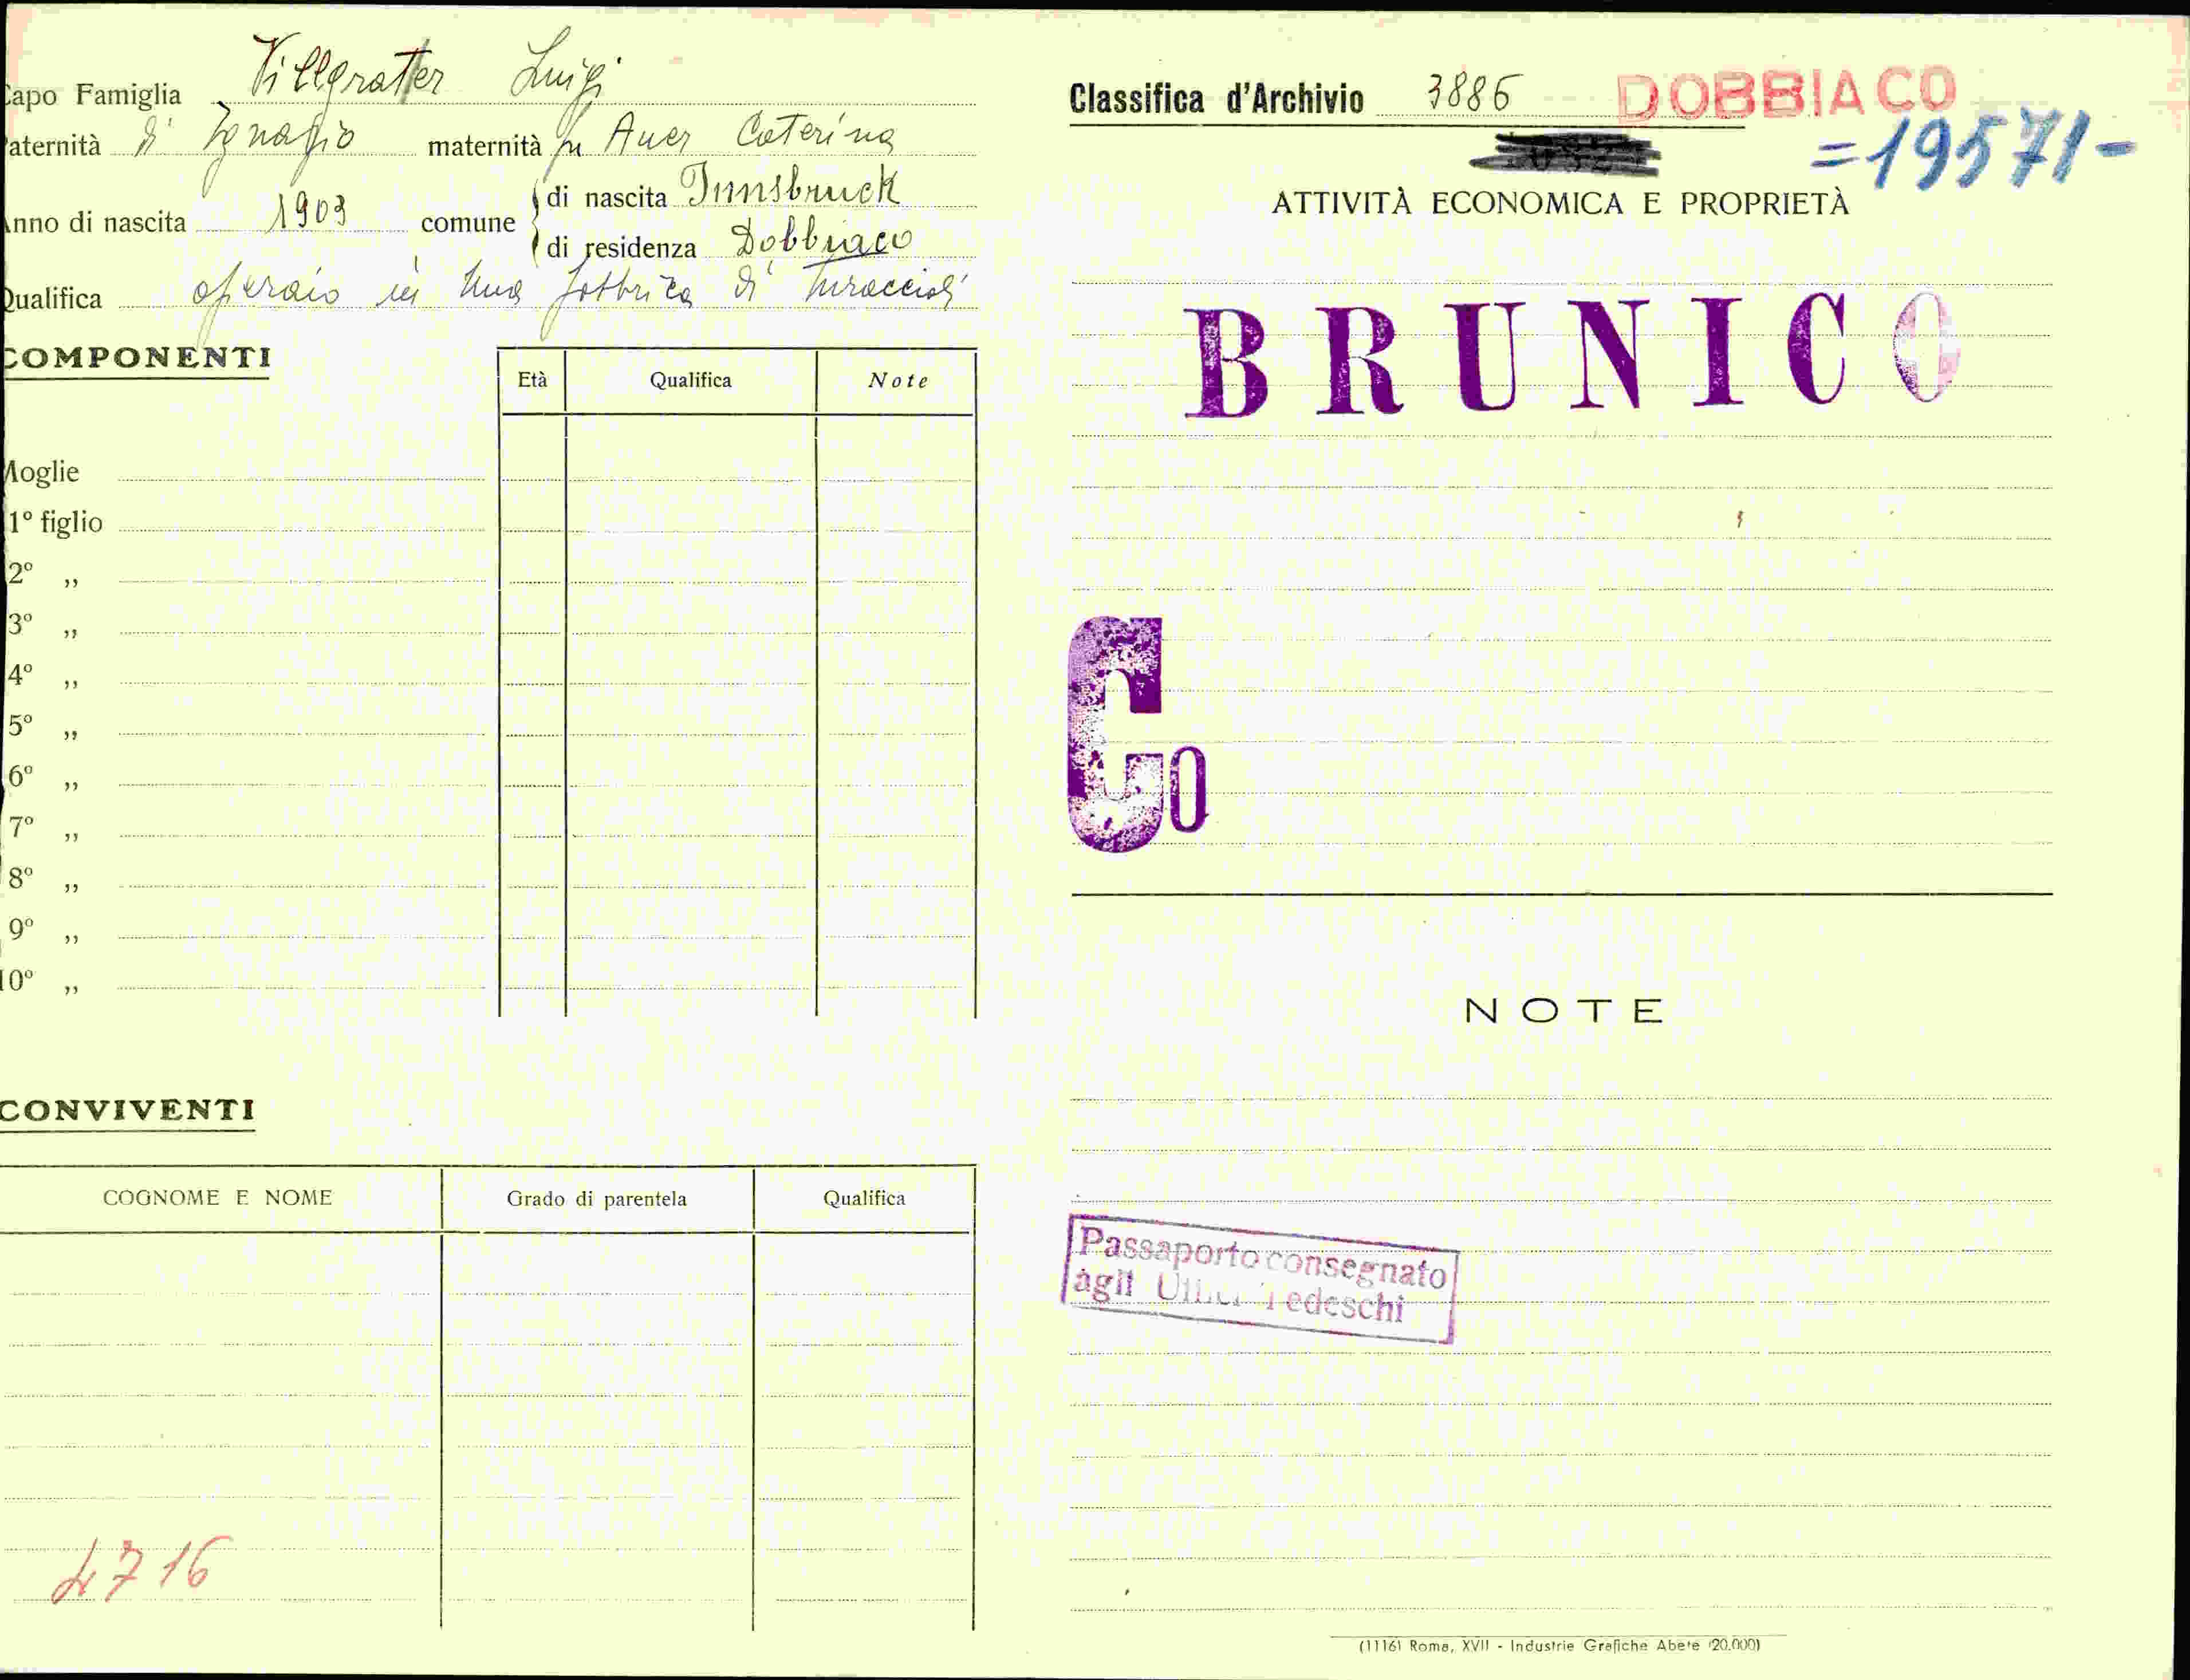 apo Famiglia Villgrater Luigi
aternità di Ignazio maternità fu Auer Caterina
nno di nascita 1903 comune di nascita Innsbruck
di residenza Dobbiaco
Qualifica operaio in una fabbrica di turaccioli
COMPONENTI
Età Qualifica Note
Moglie
1º figlio
2º ,,
3º ,,
4º ,,
5º ,,
6º ,,
7º ,,
8º ,,
9º ,,
10º ,,
CONVIVENTI
COGNOME E NOME Grado di parentela Qualifica
4716
Classifica d'Archivio 3886 DOBBIACO
=19571-
ATTIVITÀ ECONOMICA E PROPRIETÀ
BRUNICO
Co
NOTE
Passaporto consegnato
agli Uffici Tedeschi
(1116) Roma, XVII - Industrie Grafiche Abete (20.000)